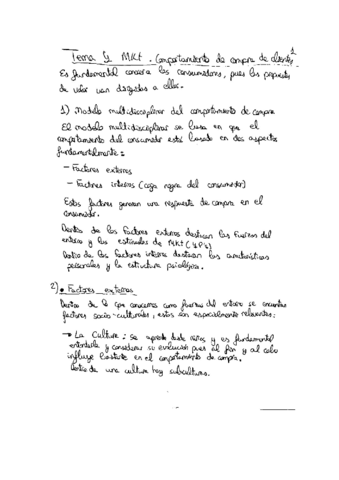 Tema 4 Mkt. Comportamiento de compra de clientes 1
Es fundamental conocer a los consumidores, pues las propuestas
de valor van dirigidas a ellos.
1) Modelo multidisciplinar del comportamiento de compra
El modelo multidisciplinar se basa en que el
comportamiento del consumidor está basado en dos aspectos
fundamentalmente:
- Factores externos
- Factores internos (caja negra del consumidor)
Estos factores generan una respuesta de compra en el
consumidor.
Dentro de los factores externos destacan las fuerzas del
entorno y los estímulos de Mkt (4P's)
Dentro de los factores internos destacan las características
personales y la estructura psicológica.
2) • Factores externos
Dentro de lo que conocemos como fuerzas del entorno se encuentran
factores socio-culturales, estos son especialmente relevantes:
→ La Cultura: se aprende desde niños y es fundamental
entenderla y considerar su evolución pues al fin y al cabo
influye bastante en el comportamiento de compra.
Dentro de una cultura hay subculturas.